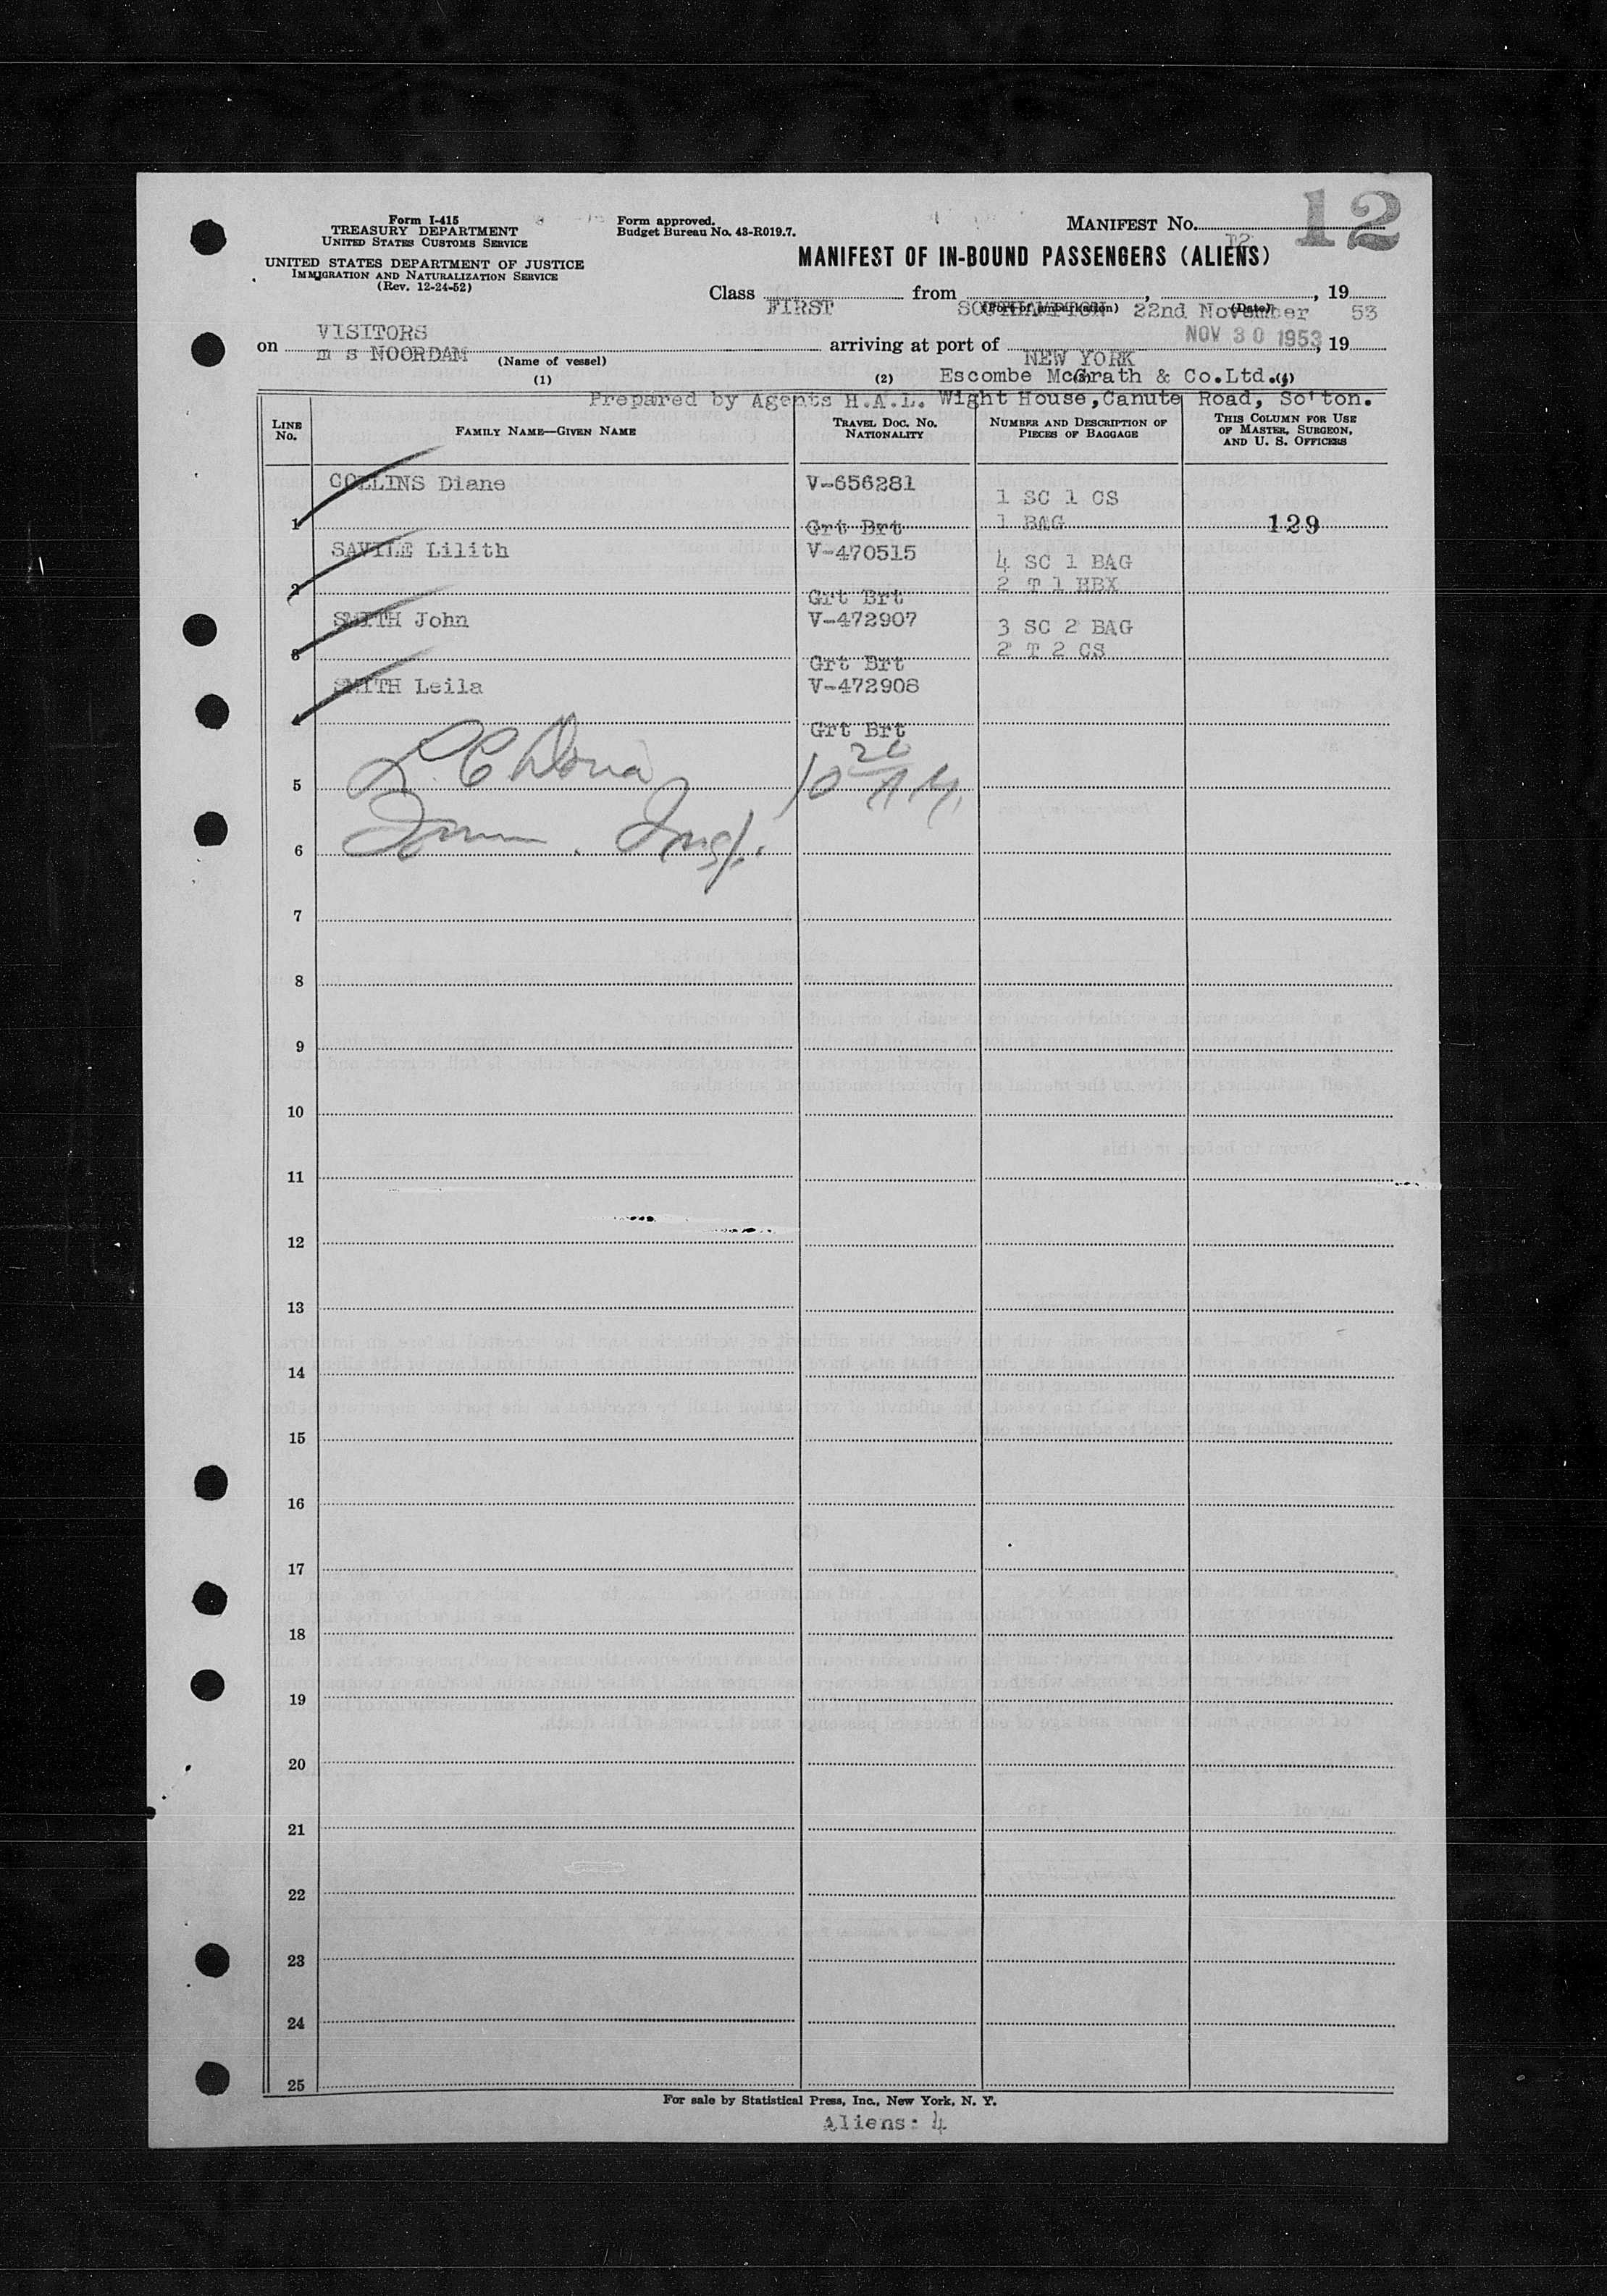 12
Form I-415
TREASURY DEPARTMENT
UNITED STATES CUSTOMS SERVICE
Form approved.
Budget Bureau No. 43-R019.7.
MANIFEST NO. 12
UNITED STATES DEPARTMENT OF JUSTICE
IMMIGRATION AND NATURALIZATION SERVICE
(Rev. 12-24-52)
MANIFEST OF IN-BOUND PASSENGERS (ALIENS)
Class FIRST from SOUTHAMPTON, 22nd November, 19 53
(Port of embarkation) (Date)
VISITORS
on m s NOORDAM arriving at port of NEW YORK NOV 30 1953, 19
(Name of vessel)
(1) (2) (3) (4)
Escombe McGrath & Co.Ltd.,
Prepared by Agents H.A.L. Wight House,Canute Road, So'ton.
LINE No. FAMILY NAME—GIVEN NAME TRAVEL DOC. NO. NATIONALITY NUMBER AND DESCRIPTION OF PIECES OF BAGGAGE THIS COLUMN FOR USE OF MASTER, SURGEON, AND U. S. OFFICERS
COLLINS Diane V-656281 1 SC 1 CS
1 Grt Brt 1 BAG 129
SAVILE Lilith V-470515 4 SC 1 BAG
2 Grt Brt 2 T 1 HBX
SMITH John V-472907 3 SC 2 BAG
3 Grt Brt 2 T 2 CS
SMITH Leila V-472908
4 Grt Brt
5 10 20 AM.
6 Imm. Insp.
7
8
9
10
11
12
13
14
15
16
17
18
19
20
21
22
23
24
25
For sale by Statistical Press, Inc., New York, N. Y.
Aliens: 4